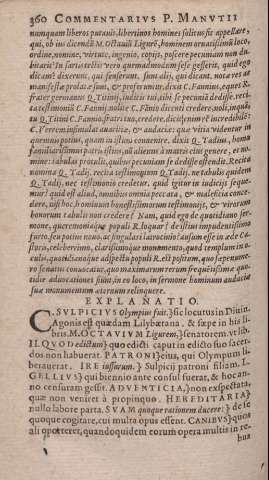 360 COMMENTARIVS P. MANVTII
nunquam liberos putauit, libertinos homines solitus sit appellare,
qui, ob ius dicendũ M. Octauiũ Ligurẽ, hominem ornatissimũ loco,
ordine, nomine, virtute, ingenio, copijs, poscere pecuniam non du
bitarit? In sartis tectis vero quemadmodum se se gesserit, quid ego
dicam? dixerunt, qui senserunt. sunt alij, qui dicant. nota res ac
manifesta probatæ sunt, & proferuntur. dixit C. Fannius, eques R.
frater germanus Q. Titinij, iudicis tui, tibi se pecuniã dedisse. recita
testimonium C. Fannij. nolite C. Fannio dicenti credere. noli, inquã,
tu Q. Titini C. Fannio, fratri tuo, credere. dicit enim rẽ incredibilẽ:
C. Verrem insimulat auaritiæ, & audaciæ: quæ vitia videntur in
quemuis potius, quam in istum conuenire. dixit Q. Tadius, homo
familiarißimus patris istius, nõ alienus à matris eius genere, et no
mine: tabulas protulit, quibus pecuniam se dedisse ostendit. Recita
nomina Q. Tadij. recita testimonium Q. Tadij. ne tabulis quidem
Q. Tadij, nec testimonio credetur. quid igitur in iudicijs seque-
mur? quid est aliud, omnibus omnia peccata, & maleficia conce-
dere, nisi hoc, hominum honestissimorum testimonijs, & virorum
bonorum tabulis non credere? Nam, quid ego de quotidiano ser-
mone, querimoniaque populi R. loquar? de istius impudentißimo
furto, seu potius nouo, ac singulari latrocinio? ausum esse in æde Ca-
storis, celeberrimo, clarissimoque monumento, quod templum in o-
culis, quotidianoque adspectu populi R. est positum, quo sæpenume-
ro senatus conuocatur, quo maximarum rerum frequentissimæ quo-
tidie aduocationes fiunt, in eo loco, in sermone hominum audaciæ
suæ monumentum æternum relinquere.
EXPLANATIO.
C. SVLPICIVS Olympius fuit.} sic locutus in Diuin.
Agonis est quædam Lilybætana. & sæpe in his li-
bris. M. OCTAVIVM Ligurem,} senatorem. vt lib.
II. QVOD edictum} quo edicti caput in edicto suo sacer-
dos non habuerat. PATRONI} eius, qui Olympum li-
berauerat. IRE iussurum.} Sulpicij patroni filiam. L.
GELLIVS} qui biennio ante consul fuerat, & hoc an-
no censuram gessit. ADVENTICIA,} non exspectata,
quæ non veniret à propinquo. HEREDITARIA}
nullo labore parta. SVAM quoque rationem ducere:} de se
quoque cogitare, cui multa opus essent. CANIBVS} quos
ali oporteret, quandoquidem eorum opera multis in re-
bus